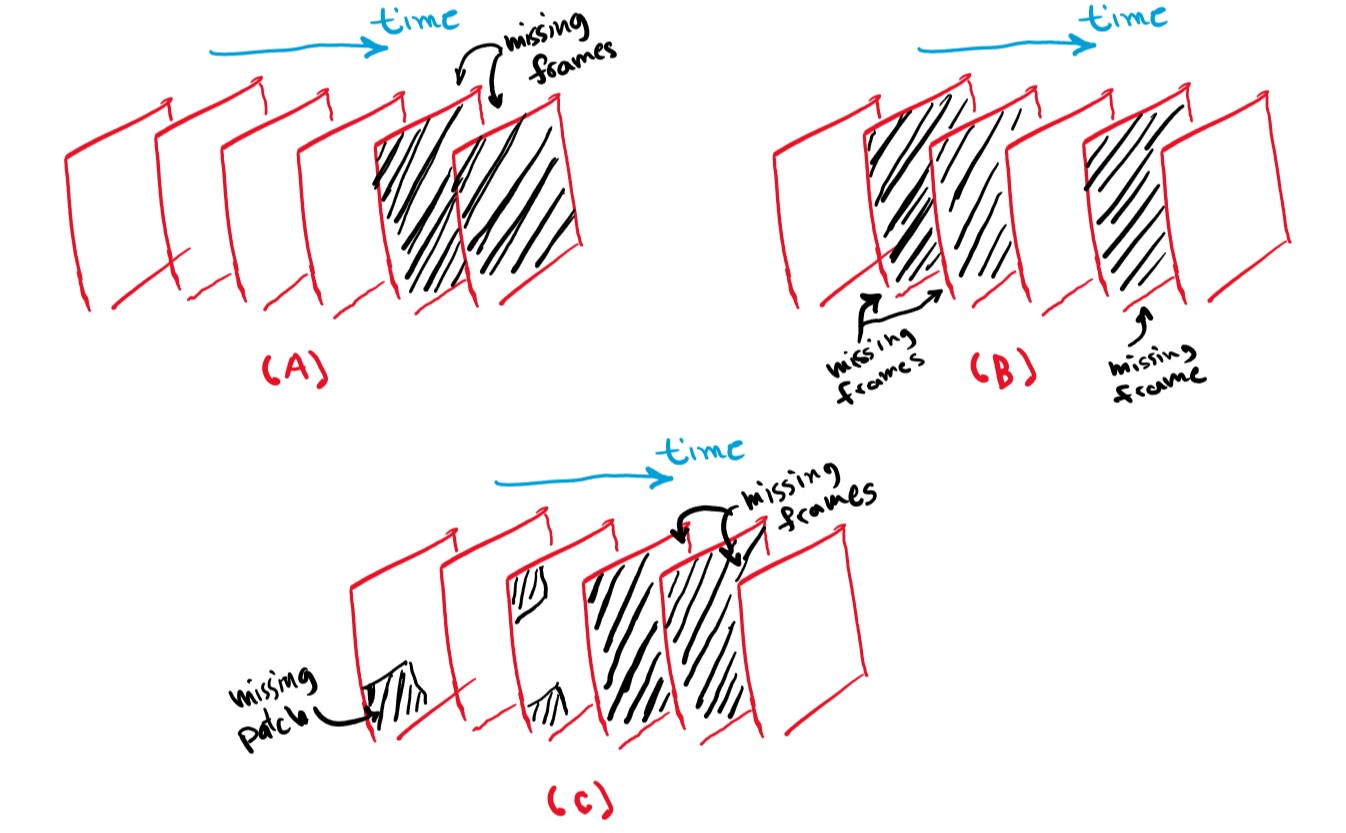 time
missing
frames
(A)
time
missing
frames
(B)
missing
frame
time
missing
frames
missing
patch
(C)